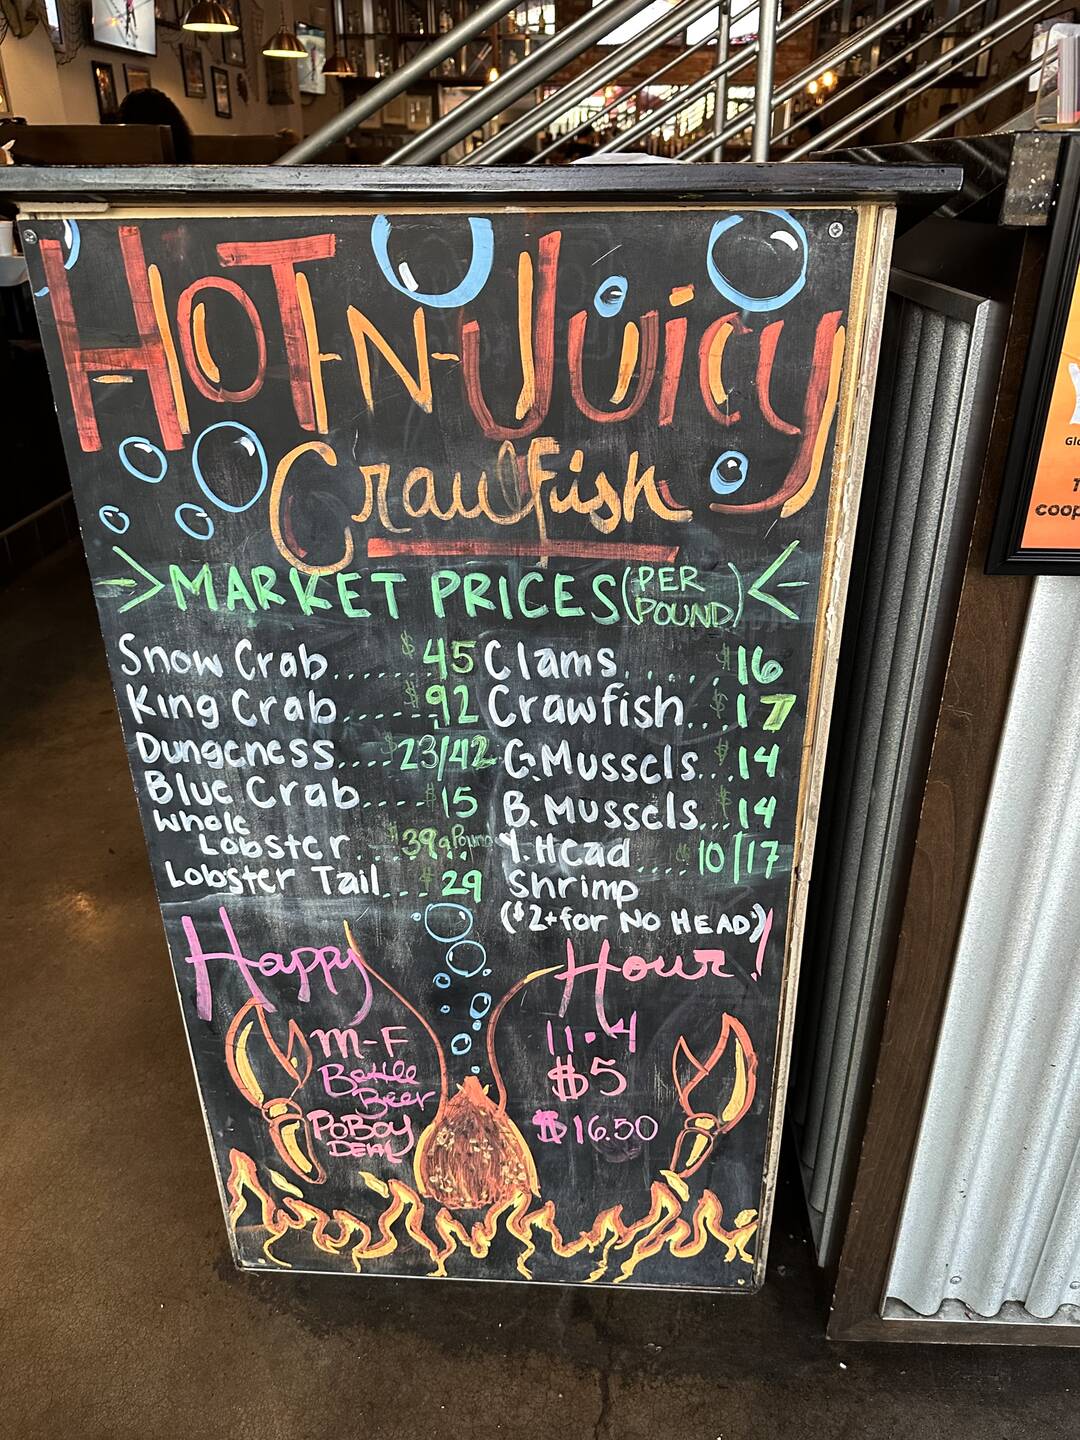 HOT-N-JUICY
Crawfish
MARKET PRICES (PER POUND)
Snow Crab...... $45
King Crab...... $92
Dungeness.... $23/42
Blue Crab.... $15
Whole
Lobster... $39 a Pound
Lobster Tail... $29
Clams...... $16
Crawfish... $17
G. Mussels... $14
B. Mussels... $14
Y. Head.... $10/17
Shrimp
($2+ for NO HEAD)
Happy Hour!
M-F 11-4
Bottle Beer $5
PoBoy Deal $16.50
coop